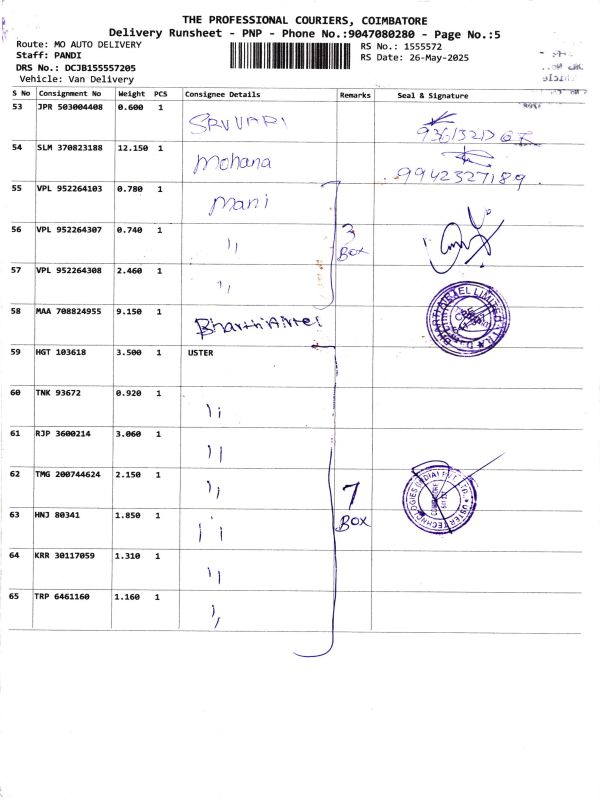 THE PROFESSIONAL COURIERS, COIMBATORE
Delivery Runsheet - PNP - Phone No.:9047080280 - Page No.:5
Route: MO AUTO DELIVERY
RS No.: 1555572
Staff: PANDI
RS Date: 26-May-2025
DRS No.: DCJB155557205
Vehicle: Van Delivery
S No Consignment No Weight PCS Consignee Details Remarks Seal & Signature
53 JPR 503004408 0.600 1
54 SLM 370823188 12.150 1 Mohana 9942327189
55 VPL 952264103 0.780 1 Mani
56 VPL 952264307 0.740 1 " 3 BOX
57 VPL 952264308 2.460 1 "
58 MAA 708824955 9.150 1 Bharthi Airtel
59 HGT 103618 3.500 1 USTER
60 TNK 93672 0.920 1 "
61 RJP 3600214 3.060 1 "
62 TMG 200744624 2.150 1 " 7
63 HNJ 80341 1.850 1 " BOX
64 KRR 30117059 1.310 1 "
65 TRP 6461160 1.160 1 "